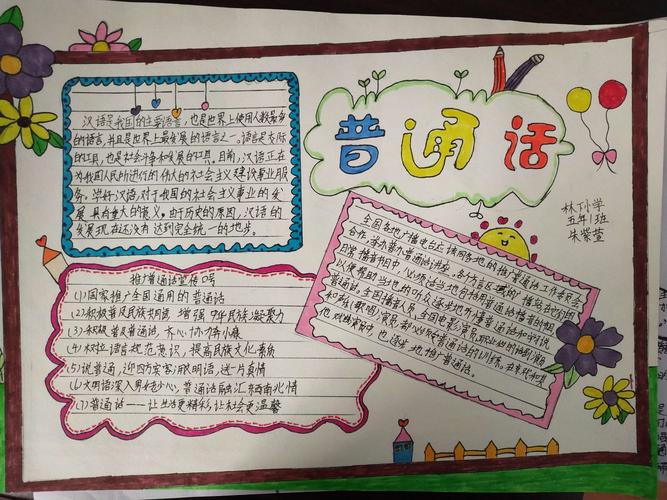 普通话
林下小学
五年1班
朱紫萱
汉语是我国的主要语言,也是世界上使用人数最多
的语言,并且是世界上最发展的语言之一。语言是交际
的工具,也是社会斗争和发展的工具。目前,汉语正在
为我国人民所进行的伟大的社会主义建设事业服
务。学好汉语,对于我国的社会主义事业的发
展具有重大的意义。由于历史的原因,汉语的
发展现在还没有达到完全统一的地步。
推广普通话宣传口号
(1)国家推广全国通用的普通话
(2)积极普及民族共同语 增强中华民族凝聚力
(3)积极普及普通话,齐心协力奔小康
(4)树立语言规范意识,提高民族文化素质
(5)说普通,迎四方宾客;用文明语,送一片真情
(6)文明语深入男女老少心,普通话融汇东西南北情
(7)普通话——让生活更精彩,让社会更温馨
全国各地广播电台应该同各地的推广普通话工作委员会
合作,举办普通话讲座。各方言区域的播
日常播音节目中,必须适当地包括用普通话播音的
以便帮助当地的听众逐步地听懂普通话和学说
普通话。全国播音人员,全国电影演员,职业性的话剧演员
和声乐(歌唱)演员,都必须受普通话的训练。在京代和其
他戏曲演员中,也应当逐步地推广普通话。